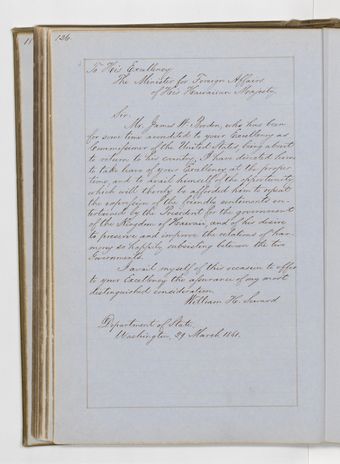 126.
To His Excellency
The Minister for Foreign Affairs
of His Hawaiian Majesty.
Sir,
Mr. James W. Borden, who has been
for some time accredited to your Excellency as
Commissioner of the United States being about
to return to his country, I have directed him
to take leave of your Excellency at the proper
time, and to avail himself of the opportunity
which will thereby be afforded him to repeat
the expression of the friendly sentiments en-
tertained by the President for the government
of the Kingdom of Hawaii, and of his desire
to preserve and improve the relations of har-
mony so happily subsisting between the two
Governments.
I avail myself of this occasion to offer
to your Excellency the assurance of my most
distinguished consideration.
William H. Seward
Department of State,
Washington, 29 March 1861.